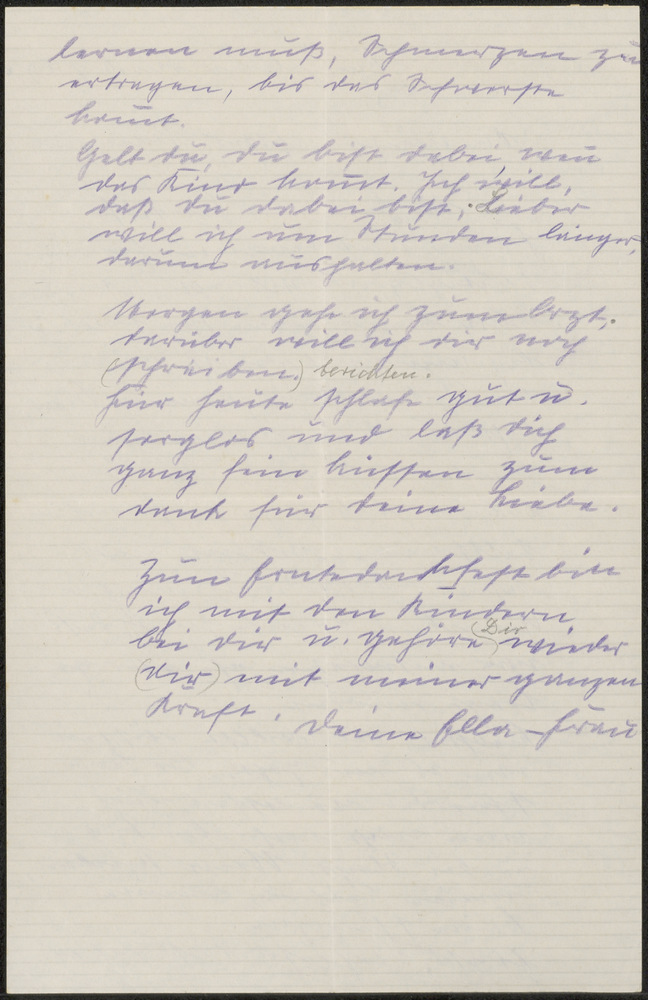 lernen muß, Schmerzen zu
ertragen, bis das Schwerste
kom̅t.
Gelt du, du bist dabei, wen̅
das Kind kom̅t. Ich will,
daß du dabei bist; Lieber
will ich um Stunden länger,
darum aushalten.
Morgen gehe ich zum Arzt,
darüber will ich dir noch
(schreiben.) berichten.
Für heute schlafe gut u.
sorglos und laß dich
ganz fein küssen zum
dank für deine Liebe.
Zum Erntedankfest bin
ich mit den Kindern
bei dir u. gehöre (Dir) wieder
(dir) mit meiner ganzen
Kraft. Deine Ella-Frau